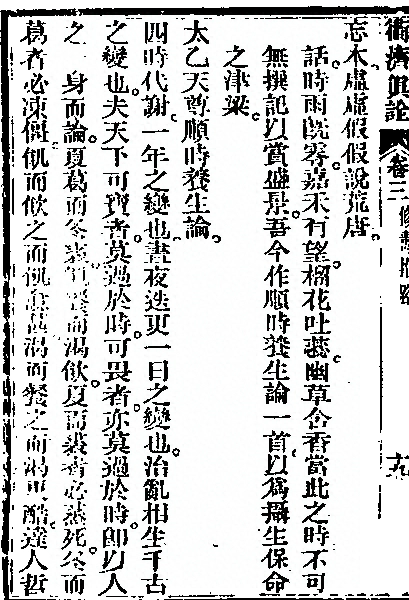 衛濟眞詮 卷三 修講指路 十九
忘木虛虛假假說荒唐
話時雨旣零嘉禾有望榴花吐蕋幽草含香當此之時不可
無撰記以賞盛景吾今作順時養生論一首以爲攝生保命
之津梁
太乙天尊順時養生論
四時代謝一年之變也晝夜迭更一日之變也治亂相生千古
之變也夫天下可寶者莫過於時可畏者亦莫過於時卽以人
之一身而論夏葛而冬裘飢餐而渴飲夏而裘者必熱死冬而
葛者必凍僵飢而飲之而飢愈甚渴而餐之而渴更酷達人哲